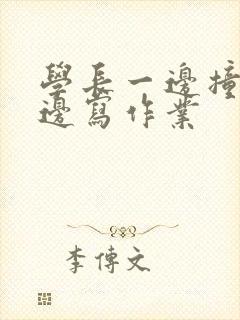 學長一邊撞
邊寫作業
李傳文